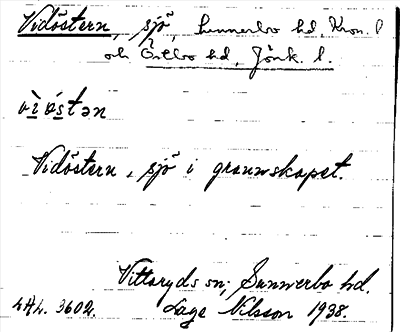 Vidöstern, sjö, Sunnerbo hd, Kron. l
och Östbo hd, Jönk. l.
vìd́östən
Vidöstern, sjö i grannskapet.
Vittaryds sn; Sunnerbo hd.
LAL. 3602. Lage Nilsson 1938.